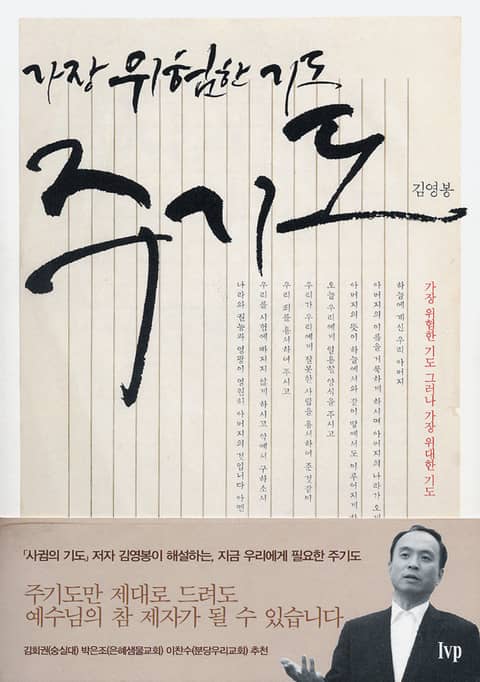 가장 위험한 기도
주기도
김영봉
가장 위험한 기도 그러나 가장 위대한 기도
하늘에 계신 우리 아버지
아버지의 이름을 거룩하게 하시며 아버지의 나라가 오게
아버지의 뜻이 하늘에서와 같이 땅에서도 이루어지게
오늘 우리에게 일용할 양식을 주시고
우리가 우리에게 잘못한 사람을 용서하여 준 것같이
우리 죄를 용서하여 주시고
우리를 시험에 빠지지 않게 하시고 악에서 구하소서
나라와 권능과 영광이 영원히 아버지의 것입니다 아멘
「사귐의 기도」 저자 김영봉이 해설하는, 지금 우리에게 필요한 주기도
주기도만 제대로 드려도
예수님의 참 제자가 될 수 있습니다
김회권(숭실대) 박은조(은혜샘물교회) 이찬수(분당우리교회) 추천
Ivp